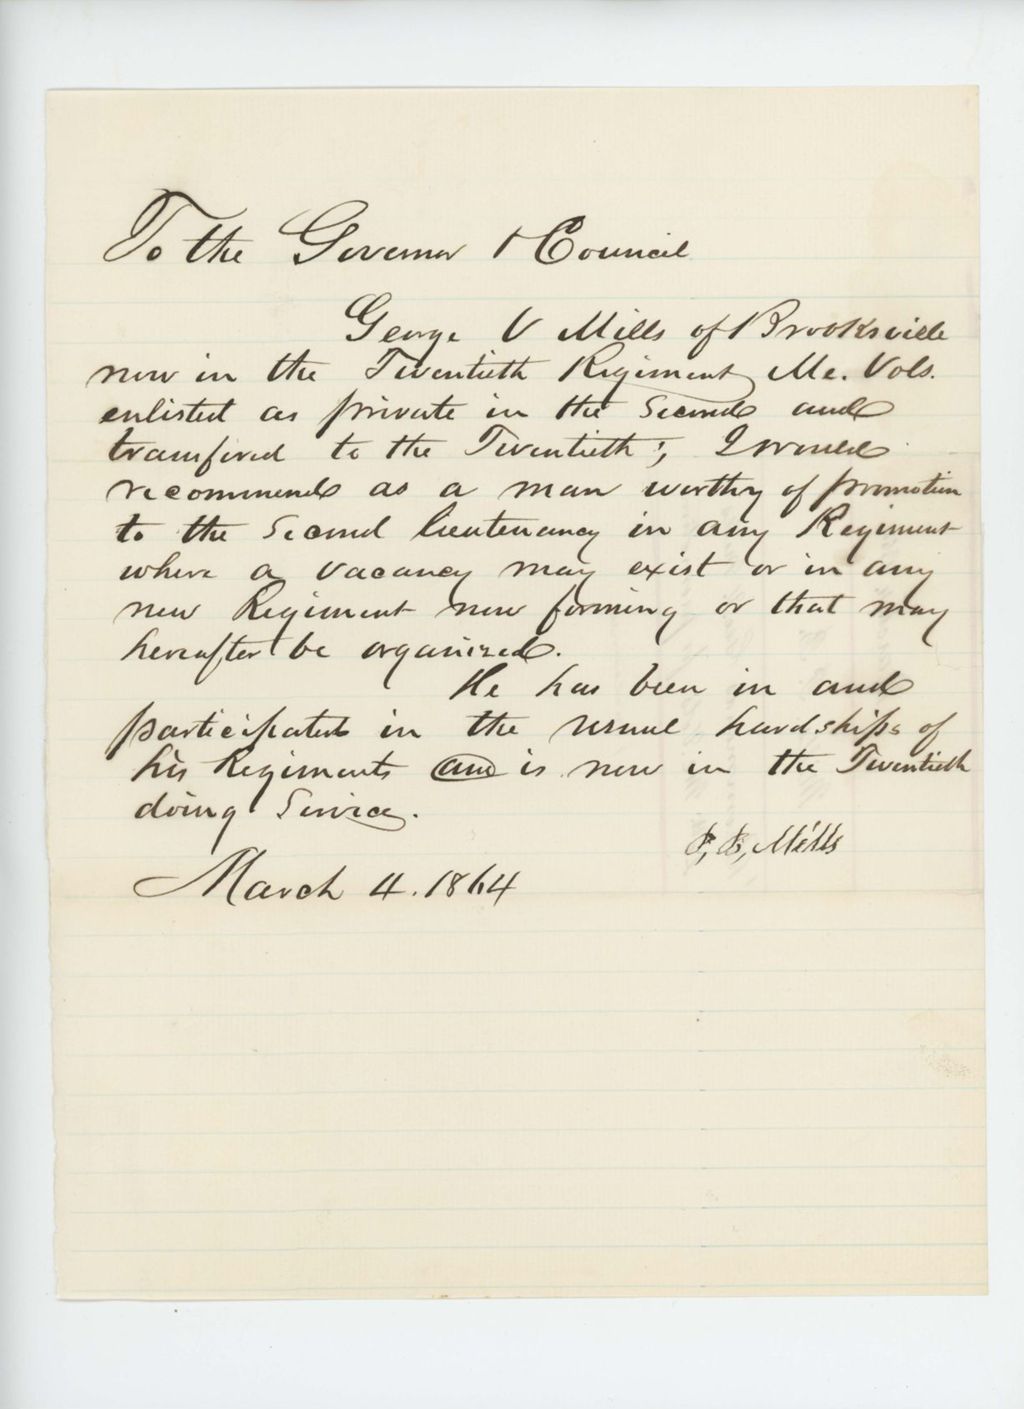 To the Governor & Council
George V Mills of Brooksville
now in the Twentieth Regiment, Me. Vols.
enlisted as private in the Second and
transfired to the Twentieth; I would
recommend as a man worthy of promotion
to the Second lieutenancy in any Regiment
where a vacancy may exist or in any
new Regiment now forming or that may
hereafter be organized.
He has been in and
participated in the usual hardships of
his Regiments and is now in the Twentieth
doing Service.
Mills
March 4. 1864